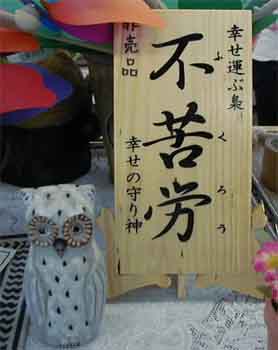 幸せ運ぶ梟
不苦労
ふくろう
幸せの守り神
非売品